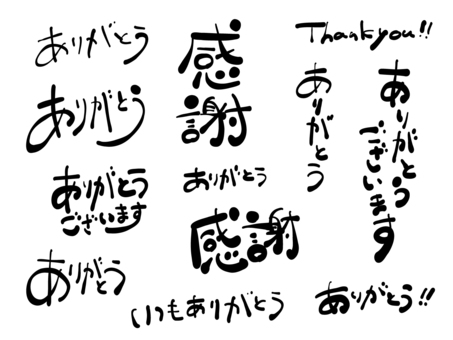 ありがとう
ありがとう
ありがとう
ございます
ありがとう
感
謝
ありがとう
感謝
いつもありがとう
Thank you!!
ありがとう
ありがとう
ございます
ありがとう!!